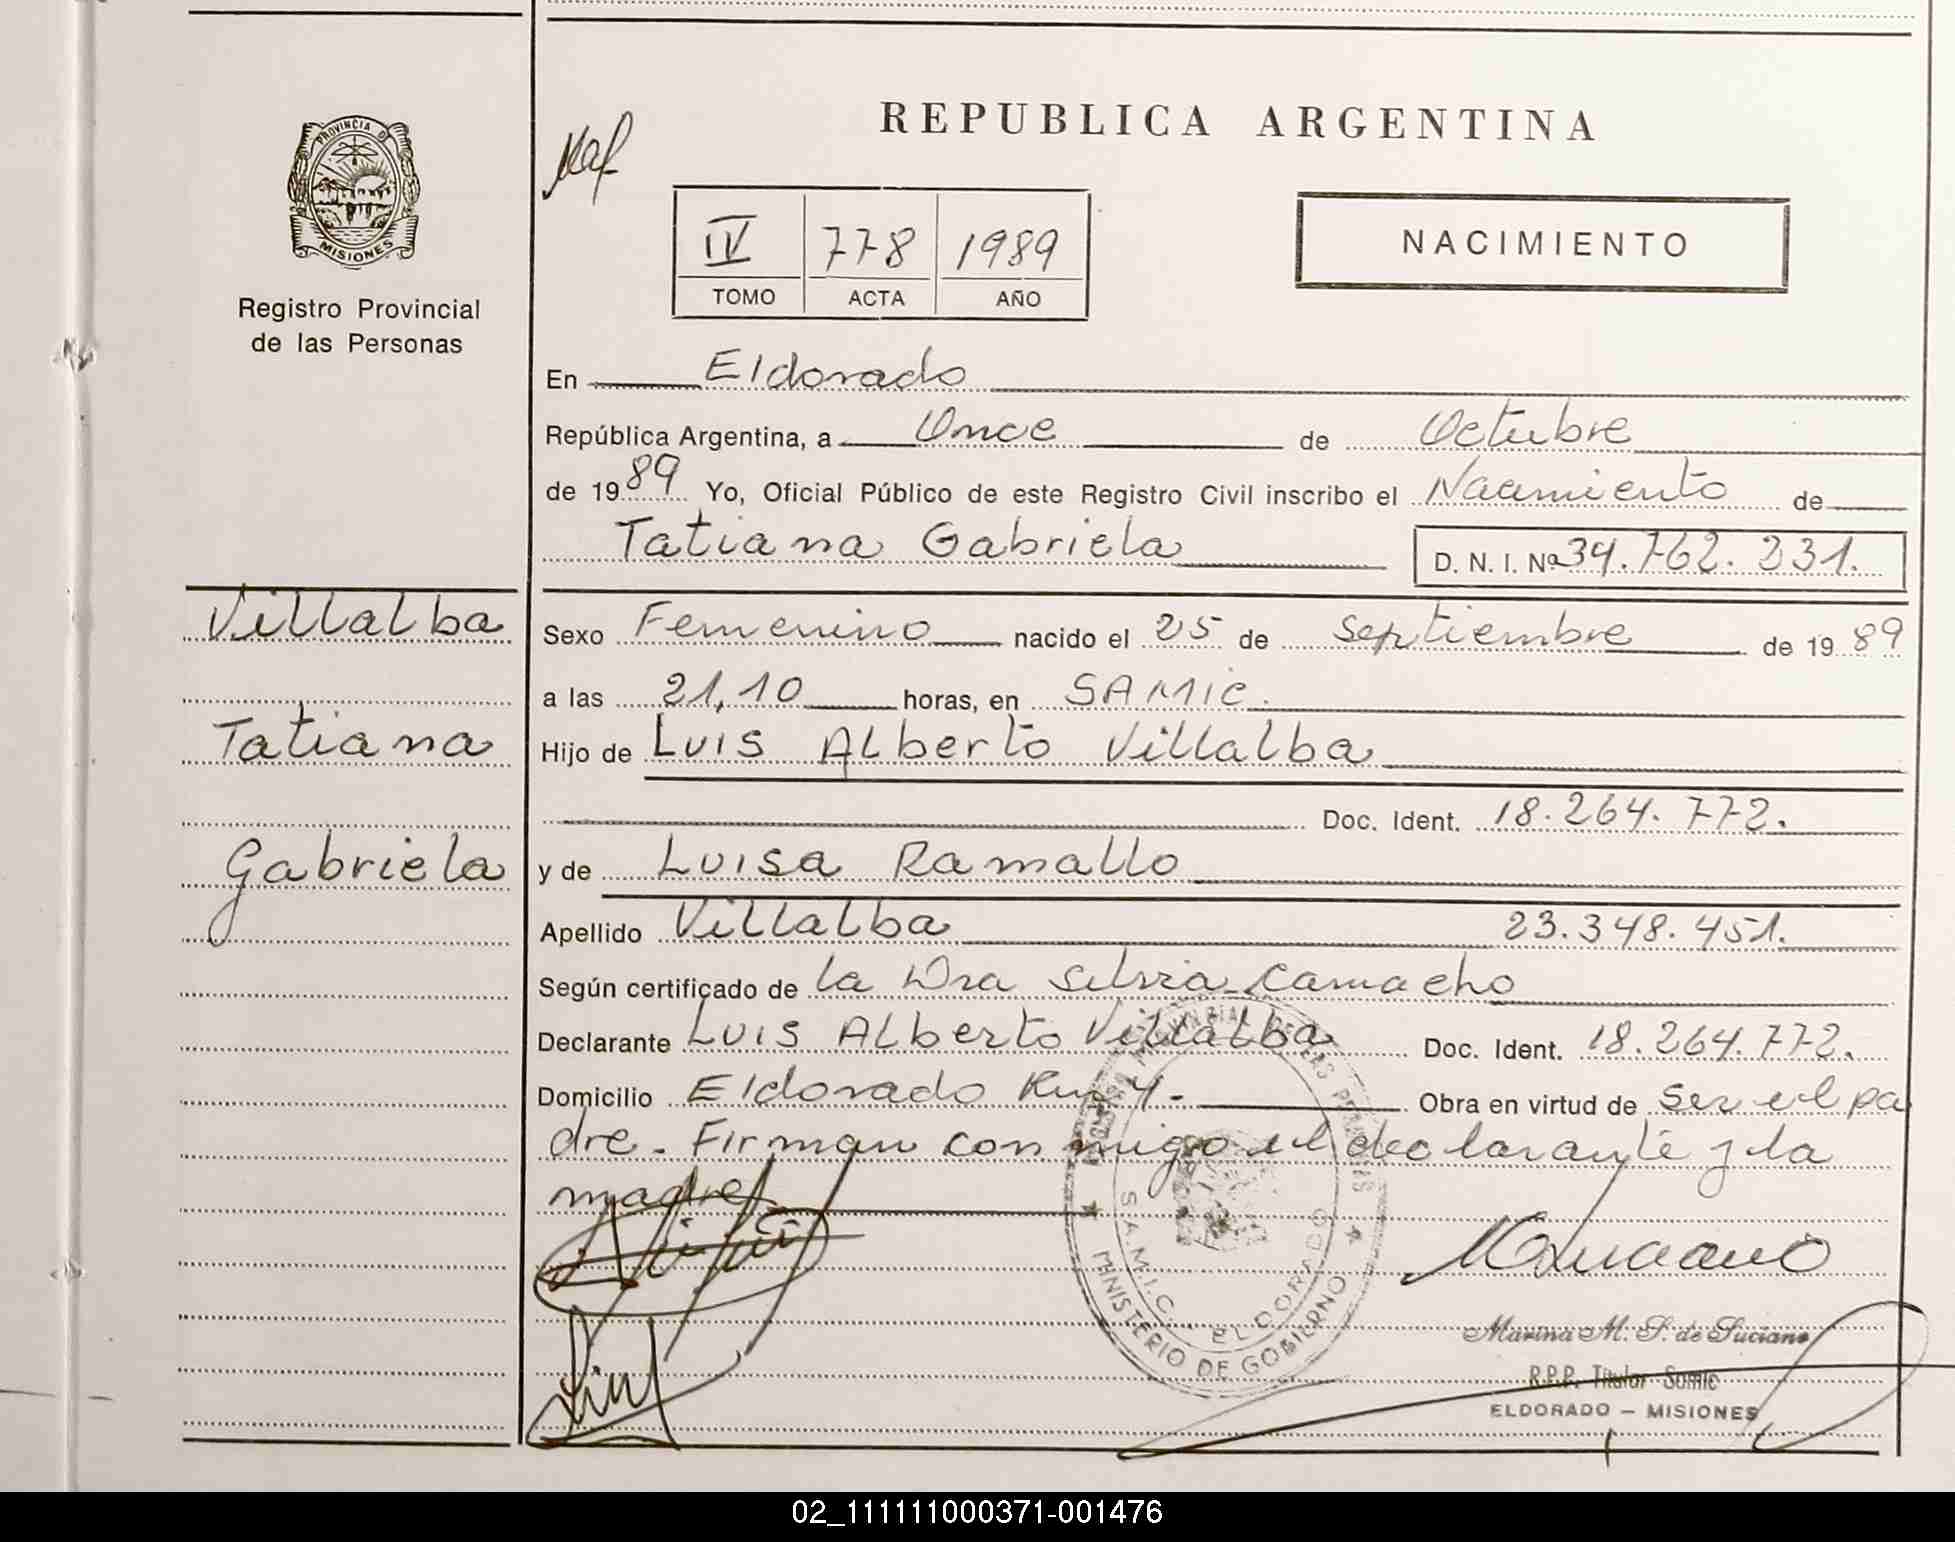 REPUBLICA ARGENTINA
PROVINCIA DE
MISIONES
Registro Provincial
de las Personas
IV 778 1989
TOMO ACTA AÑO
NACIMIENTO
En Eldorado
República Argentina, a Once de Octubre
de 1989 Yo, Oficial Público de este Registro Civil inscribo el Nacimiento de
Tatiana Gabriela D. N. I. Nº 34.762.231.
Villalba
Tatiana
Gabriela
Sexo Femenino nacido el 25 de septiembre de 1989
a las 21,10 horas, en SAMIC.
Hijo de Luis Alberto Villalba
Doc. Ident. 18.264.772.
y de Luisa Ramallo
Apellido Villalba 23.348.451.
Según certificado de la Dra Silvia Camacho
Declarante Luis Alberto Villalba Doc. Ident. 18.264.772.
Domicilio Eldorado Km 4.- Obra en virtud de ser el pa
dre. Firman conmigo el declarante y la
madre
S.A.M.I.C. - ELDORADO
MINISTERIO DE GOBIERNO
Marina M. S. de Luciano
R.P.P. Titular Samic
ELDORADO - MISIONES
02_111111000371-001476